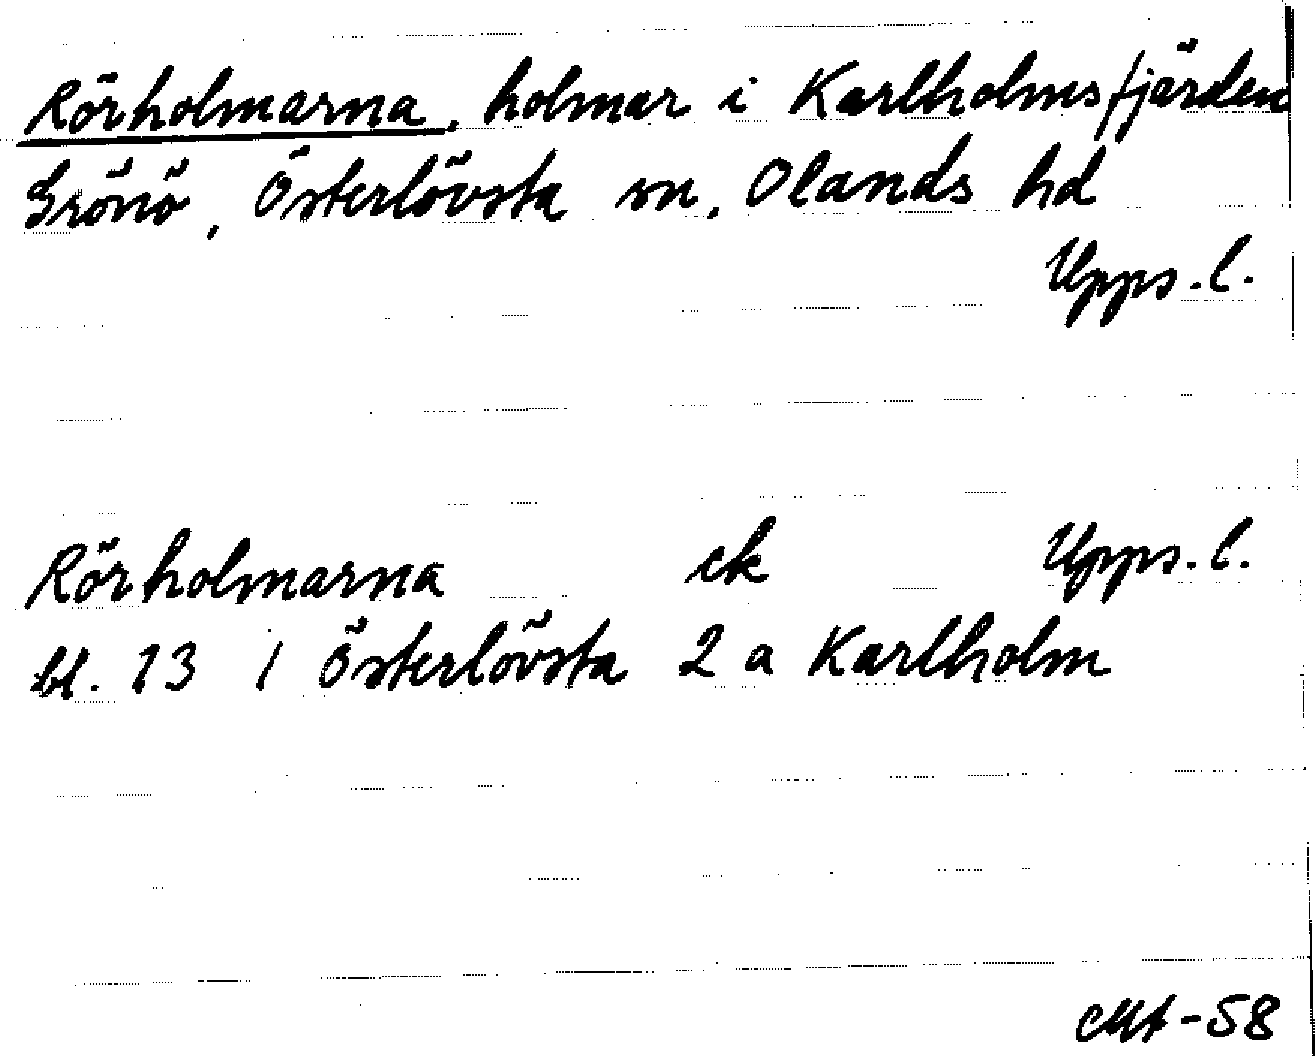 Rörholmarna, holmar i Karlholmsfjärden
Grönö, Österlövsta sn, Olands hd
Upps. l.
Rörholmarna ek Upps. l.
bl. 13 / Österlövsta 2 a Karlholm
-58